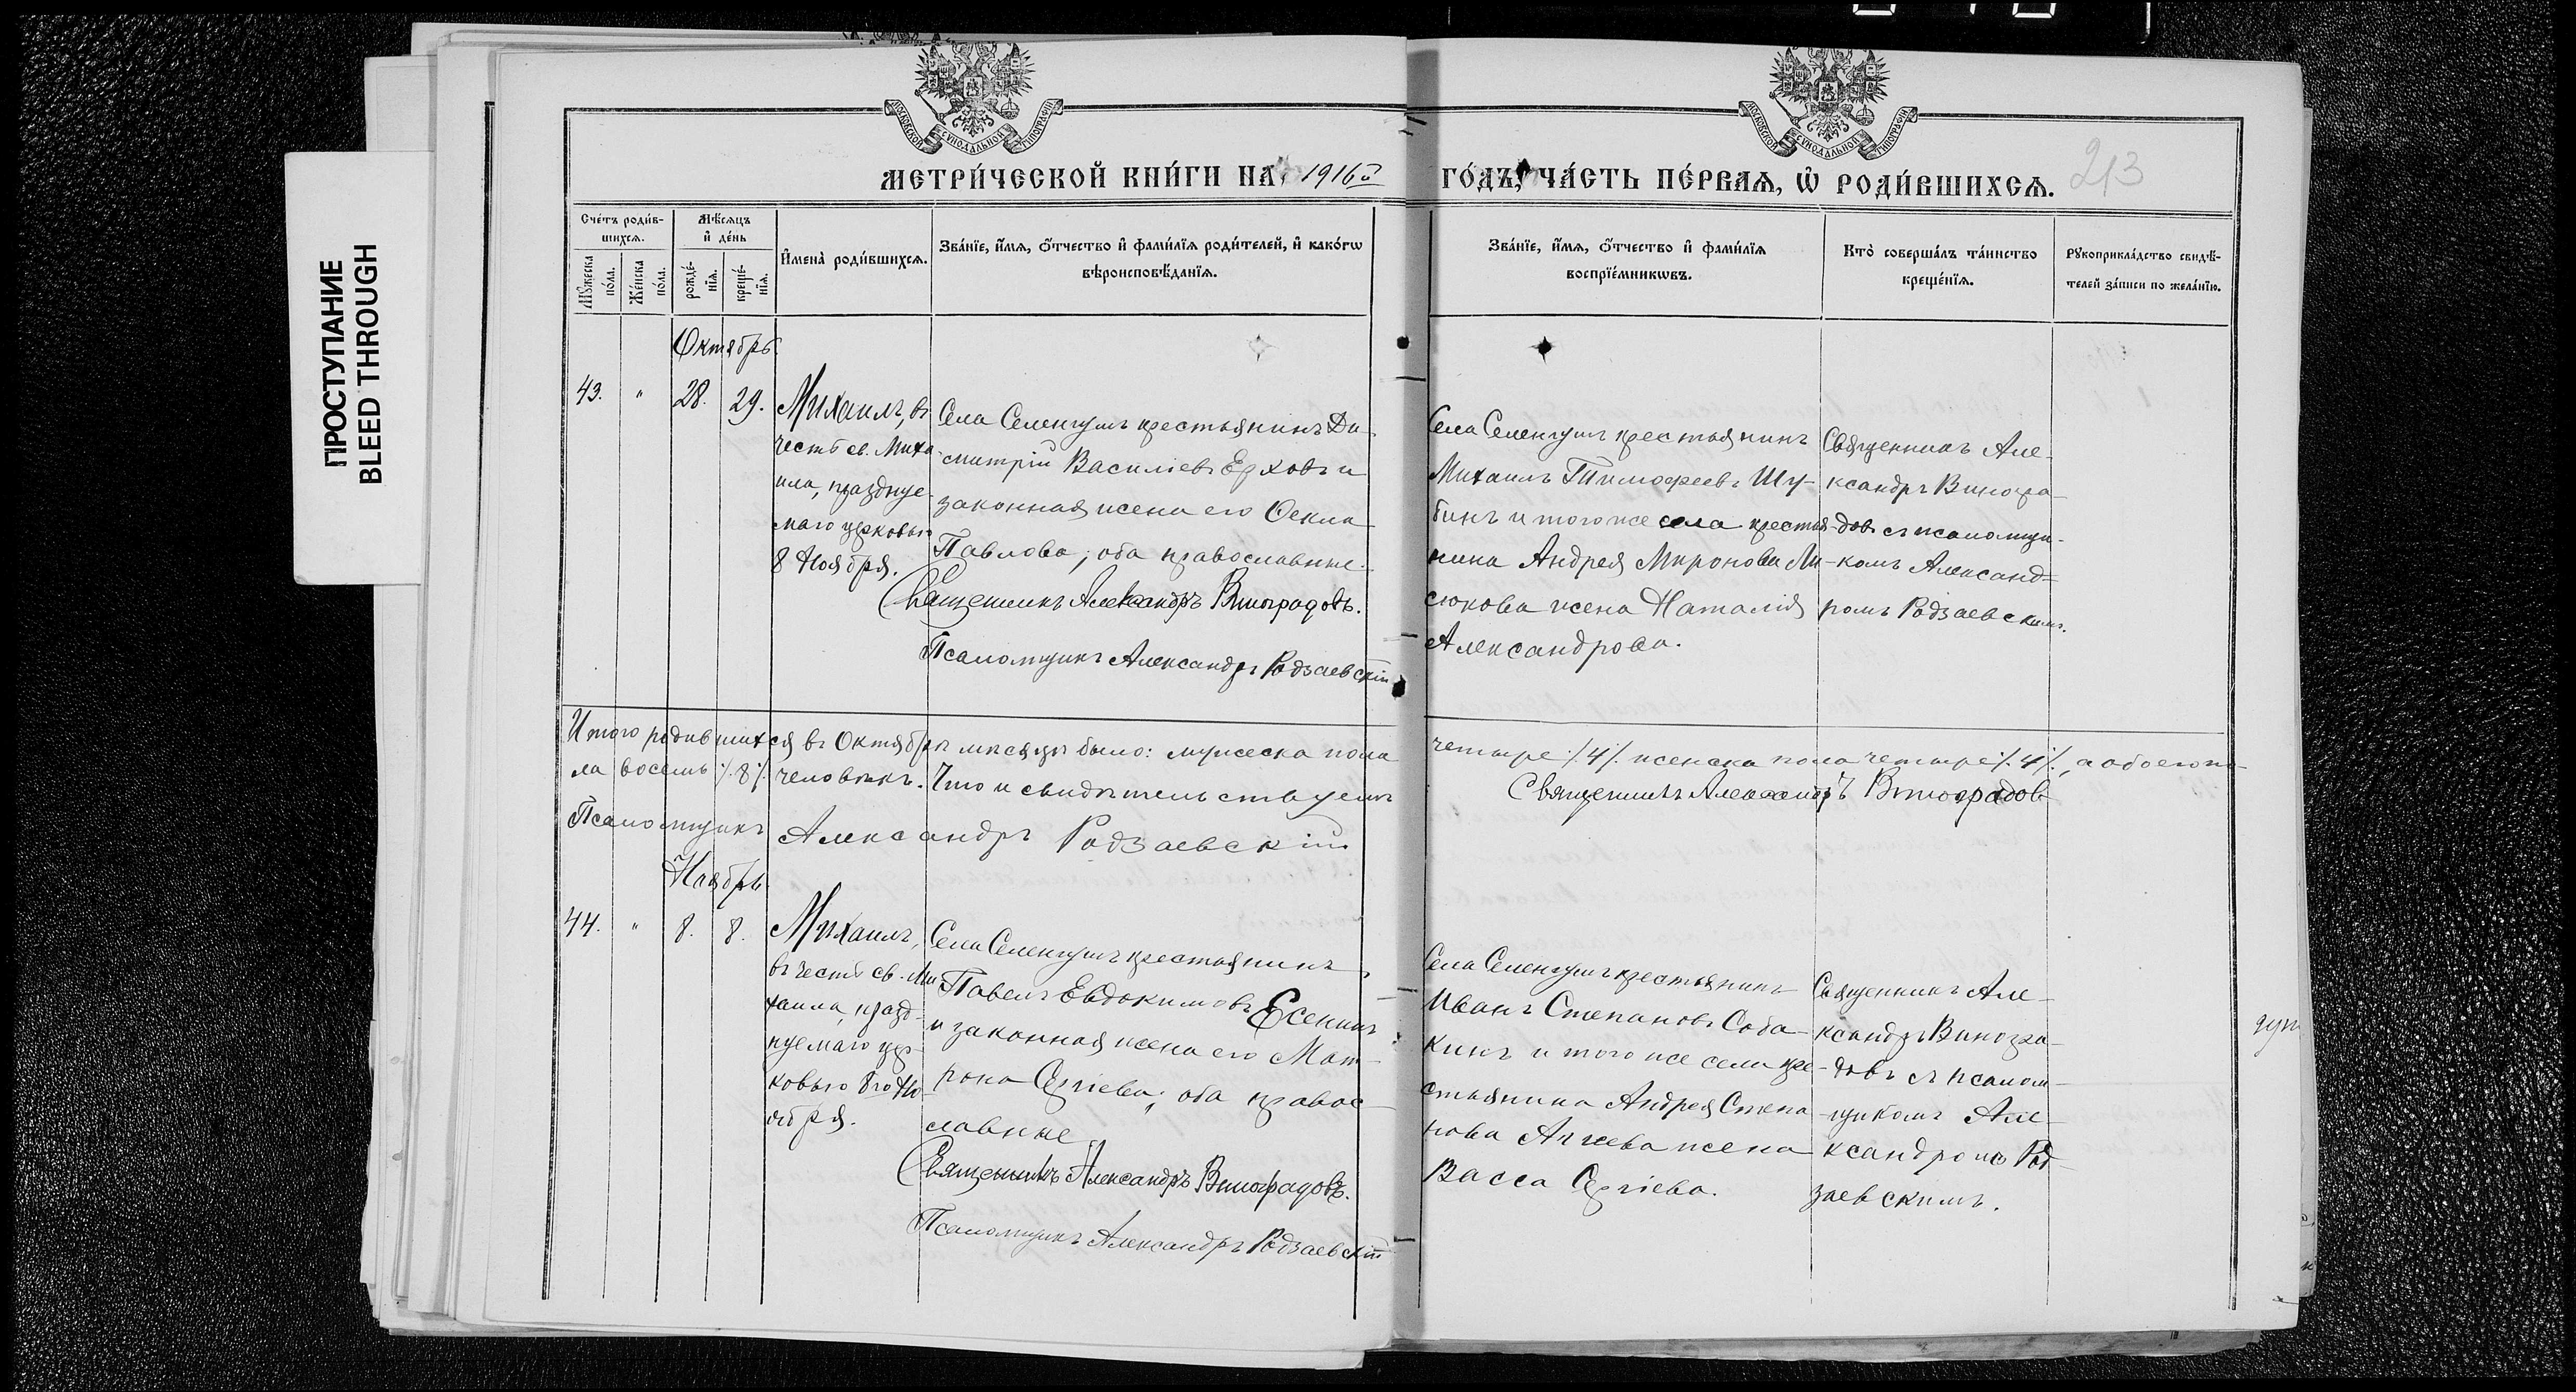 ПРОСТУПАНИЕ
BLEED THROUGH
МОСКОВСКОЙ СѴНОДАЛЬНОЙ ТИПОГРАФІИ
МОСКОВСКОЙ СѴНОДАЛЬНОЙ ТИПОГРАФІИ
МЕТРИ́ЧЕСКОЙ КНИ́ГИ НА 1916й ГО́ДЪ, ЧА́СТЬ ПЕ́РВАѦ, Ѡ҆ РОДИ́ВШИХСѦ.
213
Сче́тъ роди́в-
шихсѧ.
Мꙋ́жеска по́ла.
Же́нска по́ла.
Мѣ́сѧцъ
и҆ де́нь
рожде́-
нїѧ.
креще́-
нїѧ.
И҆мена̀ роди́вшихсѧ.
Зва́нїе, и҆́мѧ, ѻ҆́тчество и҆ фами́лїѧ роди́телей, и҆ како́гѡ
вѣроисповѣ́данїѧ.
Зва́нїе, и҆́мѧ, ѻ҆́тчество и҆ фами́лїѧ
воспрїе́мникѡвъ.
Кто̀ соверша́лъ та́инство
креще́нїѧ.
Рꙋкоприкла́дство свидѣ́-
телей за́писи по жела́нїю.
Октябрь
43. " 28. 29.
Михаилъ, въ
честь св. Миха-
ила, празднуе-
маго церковью
8 Ноября.
Села Селенгушъ крестьянинъ Ди-
митрій Василіевъ Ерховъ и
законная жена его Ѳекла
Павлова; оба православные.
Священникъ Александръ Виноградовъ.
Псаломщикъ Александръ Родзаевскій
Села Селенгушъ крестьянинъ
Михаилъ Тимофеевъ Шу-
бинъ и того же села крестья-
нина Андрея Миронова Ми-
сюкова жена Наталія
Александрова.
Священникъ Але-
ксандръ Виногра-
довъ съ псаломщи-
комъ Александ-
ромъ Родзаевскимъ.
Итого родившихся въ Октябрѣ мѣсяцѣ было: мужеска пола четыре /4/. женска пола четыре /4/., а обоего по-
ла восемь /8/. человѣкъ. Что и свидѣтельствуемъ Священникъ Александръ Виноградовъ
Псаломщикъ Александръ Родзаевскій
Ноябрь
44. " 8. 8.
Михаилъ,
въ честь св. Ми-
хаила, празд-
нуемаго цер-
ковью 8го Но-
ября.
Села Селенгушъ крестьянинъ
Павелъ Евдокимовъ Есенинъ
и законная жена его Мат-
рона Сергіева; оба правос-
лавные
Священникъ Александръ Виноградовъ.
Псаломщикъ Александръ Родзаевскій
Села Селенгушъ крестьянинъ
Иванъ Степановъ Соба-
кинъ и того же села кре-
стьянина Андрея Степа-
нова Агѣева жена
Васса Сергіева.
Священникъ Але-
ксандръ Виногра-
довъ съ псалом-
щикомъ Але-
ксандромъ Род-
заевскимъ.